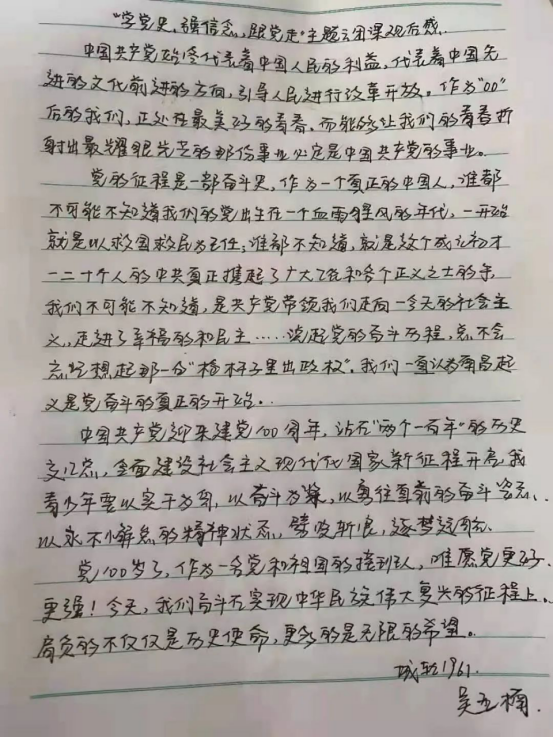 "学党史、强信念、跟党走"主题云团课观后感.
中国共产党始终代表着中国人民的利益,代表着中国先
进的文化前进的方向,引导人民进行改革开放。作为"00"
后的我们,正处在最美好的青春,而能够让我们的青春折
射出最耀眼光芒的那份事业必定是中国共产党的事业。
党的征程是一部奋斗史,作为一个真正的中国人,谁都
不可能不知道我们的党出生在一个血雨腥风的年代,一开始
就是以救国救民为己任,谁都不知道,就是这个成立初才
一二十个人的中共真正携起了广大工农和各个正义之士的手,
我们不可能不知道,是共产党带领我们走向一今天的社会主
义,走进了幸福的和民主……谈起党的奋斗历程,总不会
忘记想起那一句"枪杆子里出政权"。我们一直认为南昌起
义是党奋斗的真正的开始。
中国共产党迎来建党100周年,站在"两个一百年"的历史
交汇点,全面建设社会主义现代化国家新征程开启,我
青少年要以实干为笔,以奋斗为,以勇往直前的奋斗姿态、
以永不懈怠的精神状态,劈波斩浪,逐梦远航.
党100岁了,作为一名党和祖国的接班人,唯愿党更好、
更强!今天,我们奋斗在实现中华民族伟大复兴的征程上,
肩负的不仅仅是历史使命,更多的是无限的希望。
城轨1961.
吴五楠.